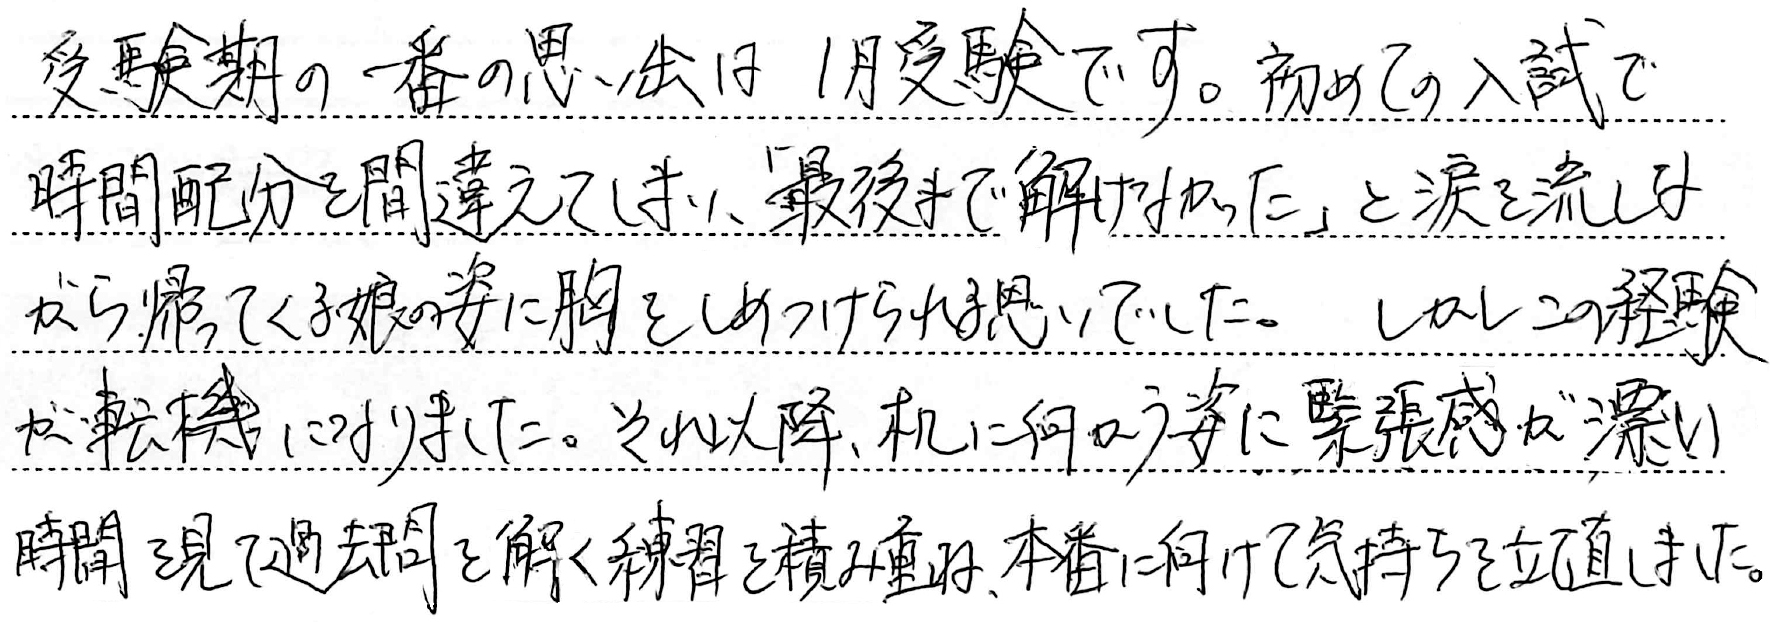 受験期の一番の思い出は1月受験です。初めての入試で
時間配分を間違えてしまい、「最後まで解けなかった」と涙を流しな
がら帰ってくる娘の姿に胸をしめつけられる思いでした。 しかしこの経験
が転機になりました。それ以降、机に向かう姿に緊張感が漂い
時間を見て過去問を解く練習を積み重ね、本番に向けて気持ちを立て直しました。